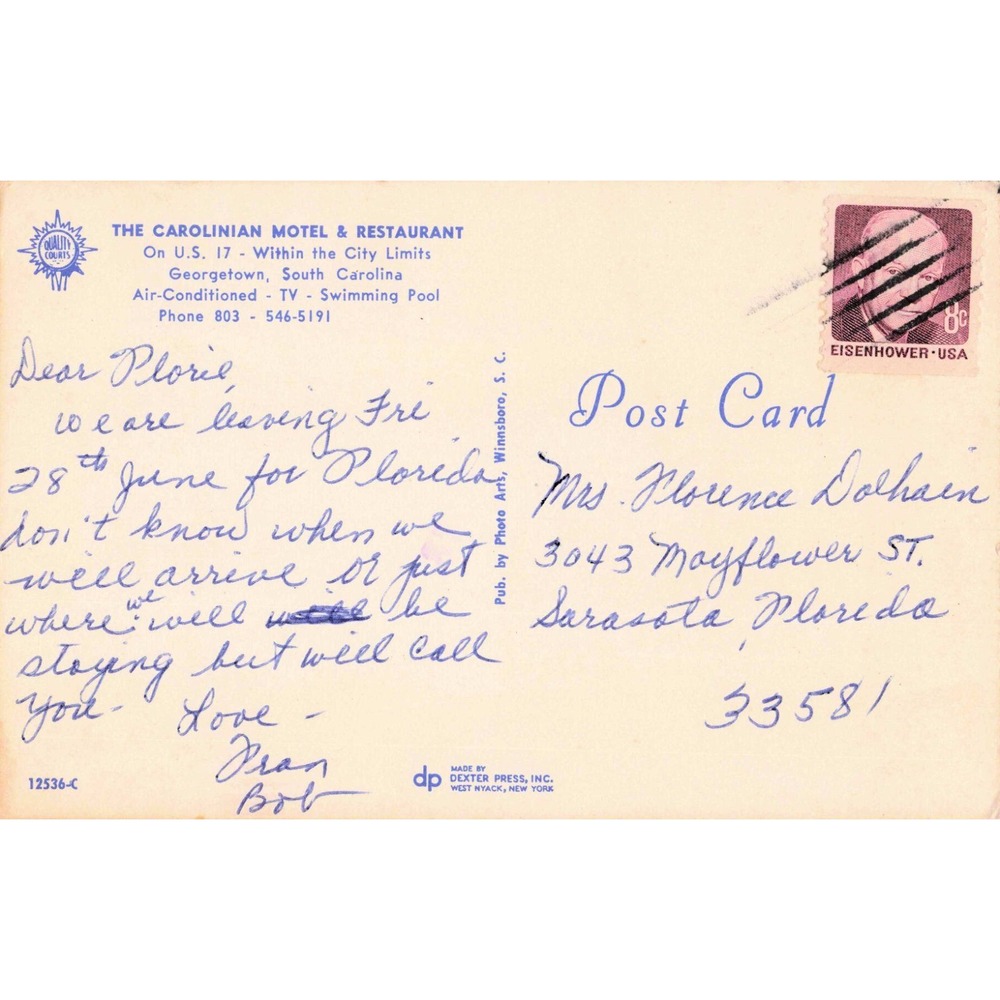 QUALITY
COURTS
THE CAROLINIAN MOTEL & RESTAURANT
On U.S. 17 - Within the City Limits
Georgetown, South Carolina
Air-Conditioned - TV - Swimming Pool
Phone 803 - 546-5191
Dear Florie,
we are leaving Fri
28th June for Florida
don't know when we
will arrive or just
where we will be
staying but will call
you - Love -
Fran
Bob
12536-C
Pub. by Photo Arts, Winnsboro, S. C.
dp MADE BY
DEXTER PRESS, INC.
WEST NYACK, NEW YORK
8c
EISENHOWER·USA
Post Card
Mrs. Florence Dalhain
3043 Mayflower ST.
Sarasota, Florida
33581